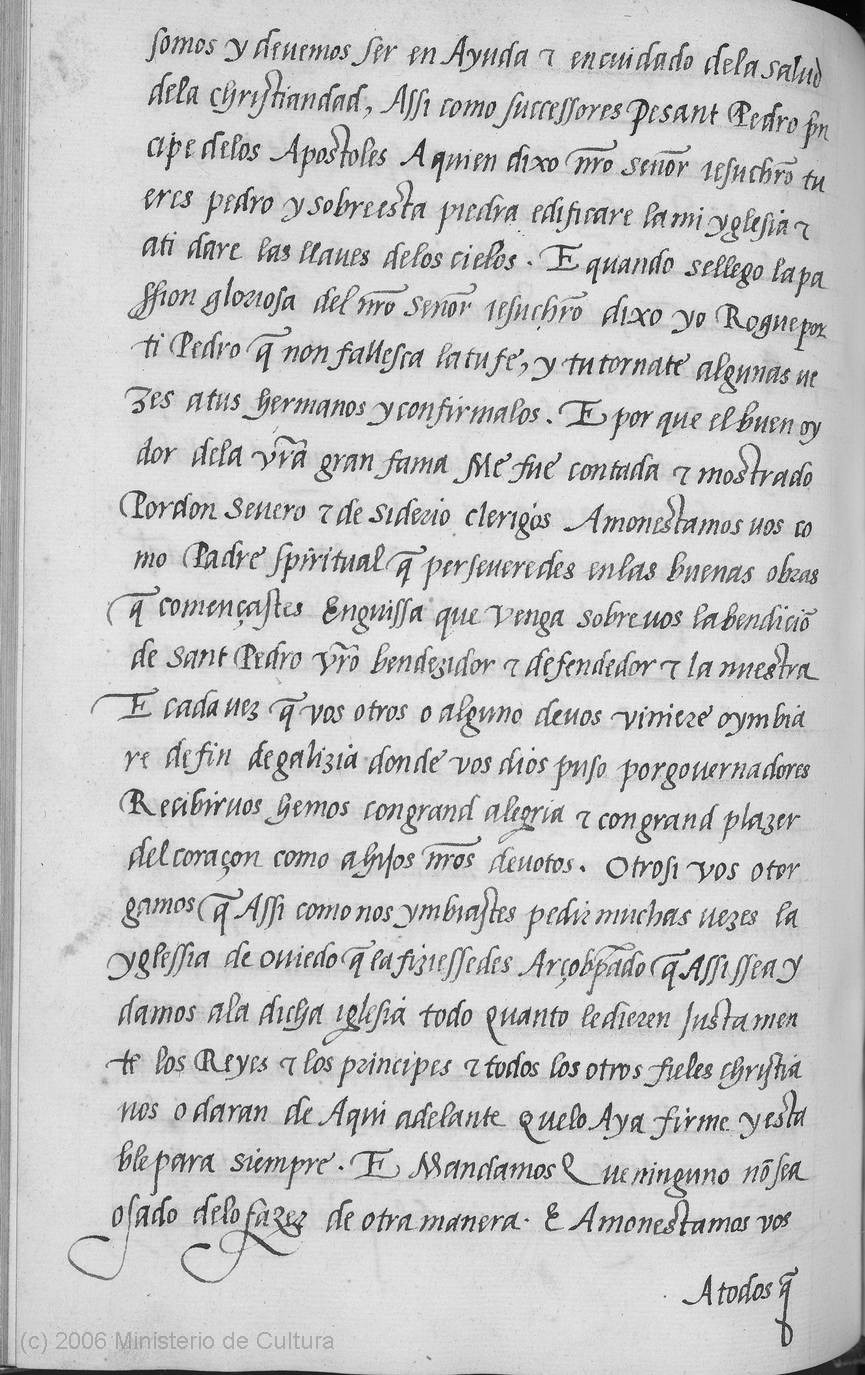 somos y deuemos ser en Ayuda ⁊ encuidado dela salud
dela christiandad, Assi como successores De sant Pedro p̃n
cipe delos Apostoles A quien dixo nr̃o señor iesuchr̃o tu
eres pedro y sobre esta piedra edificare la mi yglesia ⁊
ati dare las llaues delos cielos. E quando sellego la pa
ssion gloriosa del nr̃o señor iesuchr̃o dixo yo Rogue por
ti Pedro q̃ non fallesca la tu fe, y tu tornate algunas ue
zes a tus hermanos y confirmalos. E por que el buen oy
dor dela vr̃a gran fama Me fue contada ⁊ mostrado
Por don Seuero ⁊ de Siderio clerigos Amonestamos uos co
mo Padre spiritual q̃ perseueredes en las buenas obras
q̃ començastes En guissa que venga sobre uos la bendiciõ
de Sant Pedro vr̃o bendezidor ⁊ defendedor ⁊ la nuestra
E cada uez q̃ vos otros o alguno de uos viniere o ymbia
re de fin de galizia donde vos dios puso por gouernadores
Recibir uos hemos con grand alegria ⁊ con grand plazer
del coraçon como a hijos nr̃os deuotos. Otrosi vos otor
gamos q̃ Assi como nos ymbiastes pedir muchas uezes la
yglessia de ouiedo q̃ la fiziessedes Arçobp̃ado q̃ Assi ssea y
damos ala dicha iglesia todo quanto le dieren Justamen
te los Reyes ⁊ los principes ⁊ todos los otros fieles christia
nos o daran de Aqui adelante Que lo Aya firme y esta
ble para siempre. E Mandamos Que ninguno nõ sea
osado delo fazer de otra manera. E Amonestamos vos
A todos q̃
(c) 2006 Ministerio de Cultura